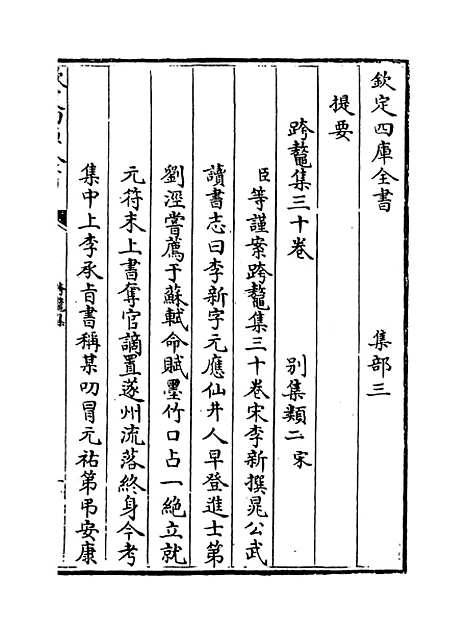 欽定四庫全書　　　集部三
提要
跨鼇集三十卷　　別集類二宋
臣等謹案跨鼇集三十卷宋李新撰晁公武
讀書志曰李新字元應仙井人早登進士第
劉涇嘗薦于蘇軾命賦墨竹口占一絶立就
元符末上書奪官謫置遂州流落終身今考
集中上李承㫖書稱某叨冒元祐第弔安康
跨鼇集